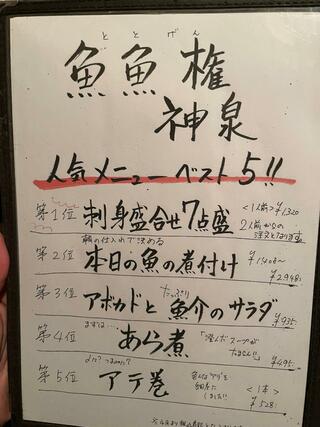 ととげん
魚魚権
神泉
人気メニューベスト5!!
第1位 刺身盛合せ7点盛 <1人前>¥1,320
2人前からの
注文となります
朝の仕入れで決める
第2位 本日の魚の煮付け ¥1,408~
¥2,948
第3位 アボカドとたっぷり魚介のサラダ ¥935
まずは…
第4位 あら煮 「澄んだスープが
たまらん!!」 ¥495
第5位 アテ巻 <1本>
¥528